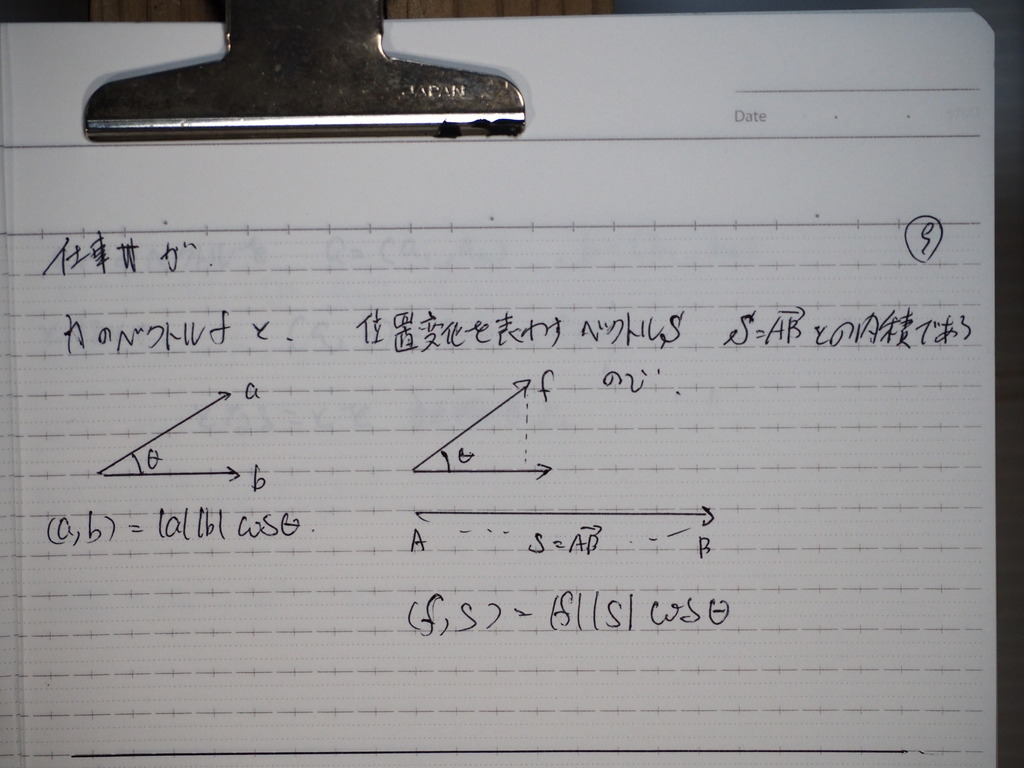 JAPAN
Date
9
仕事Wが、
力のベクトルfと、 位置変化を表わすベクトルS S=AB との内積である
ので、
a
θ
b
f
θ
(a,b) = |a||b| cosθ.
A S=AB B
(f,S) = |f||S| cosθ